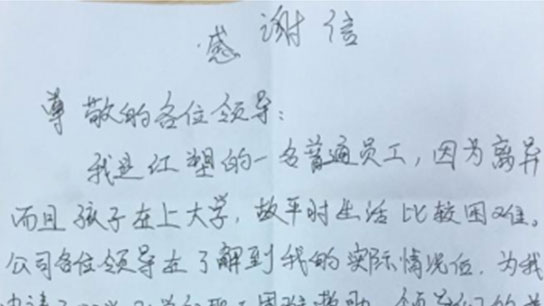 感谢信
尊敬的各位领导：
我是红塑的一名普通员工，因为离异
而且孩子在上大学，故平时生活比较困难。
公司各位领导在了解到我的实际情况后，为我